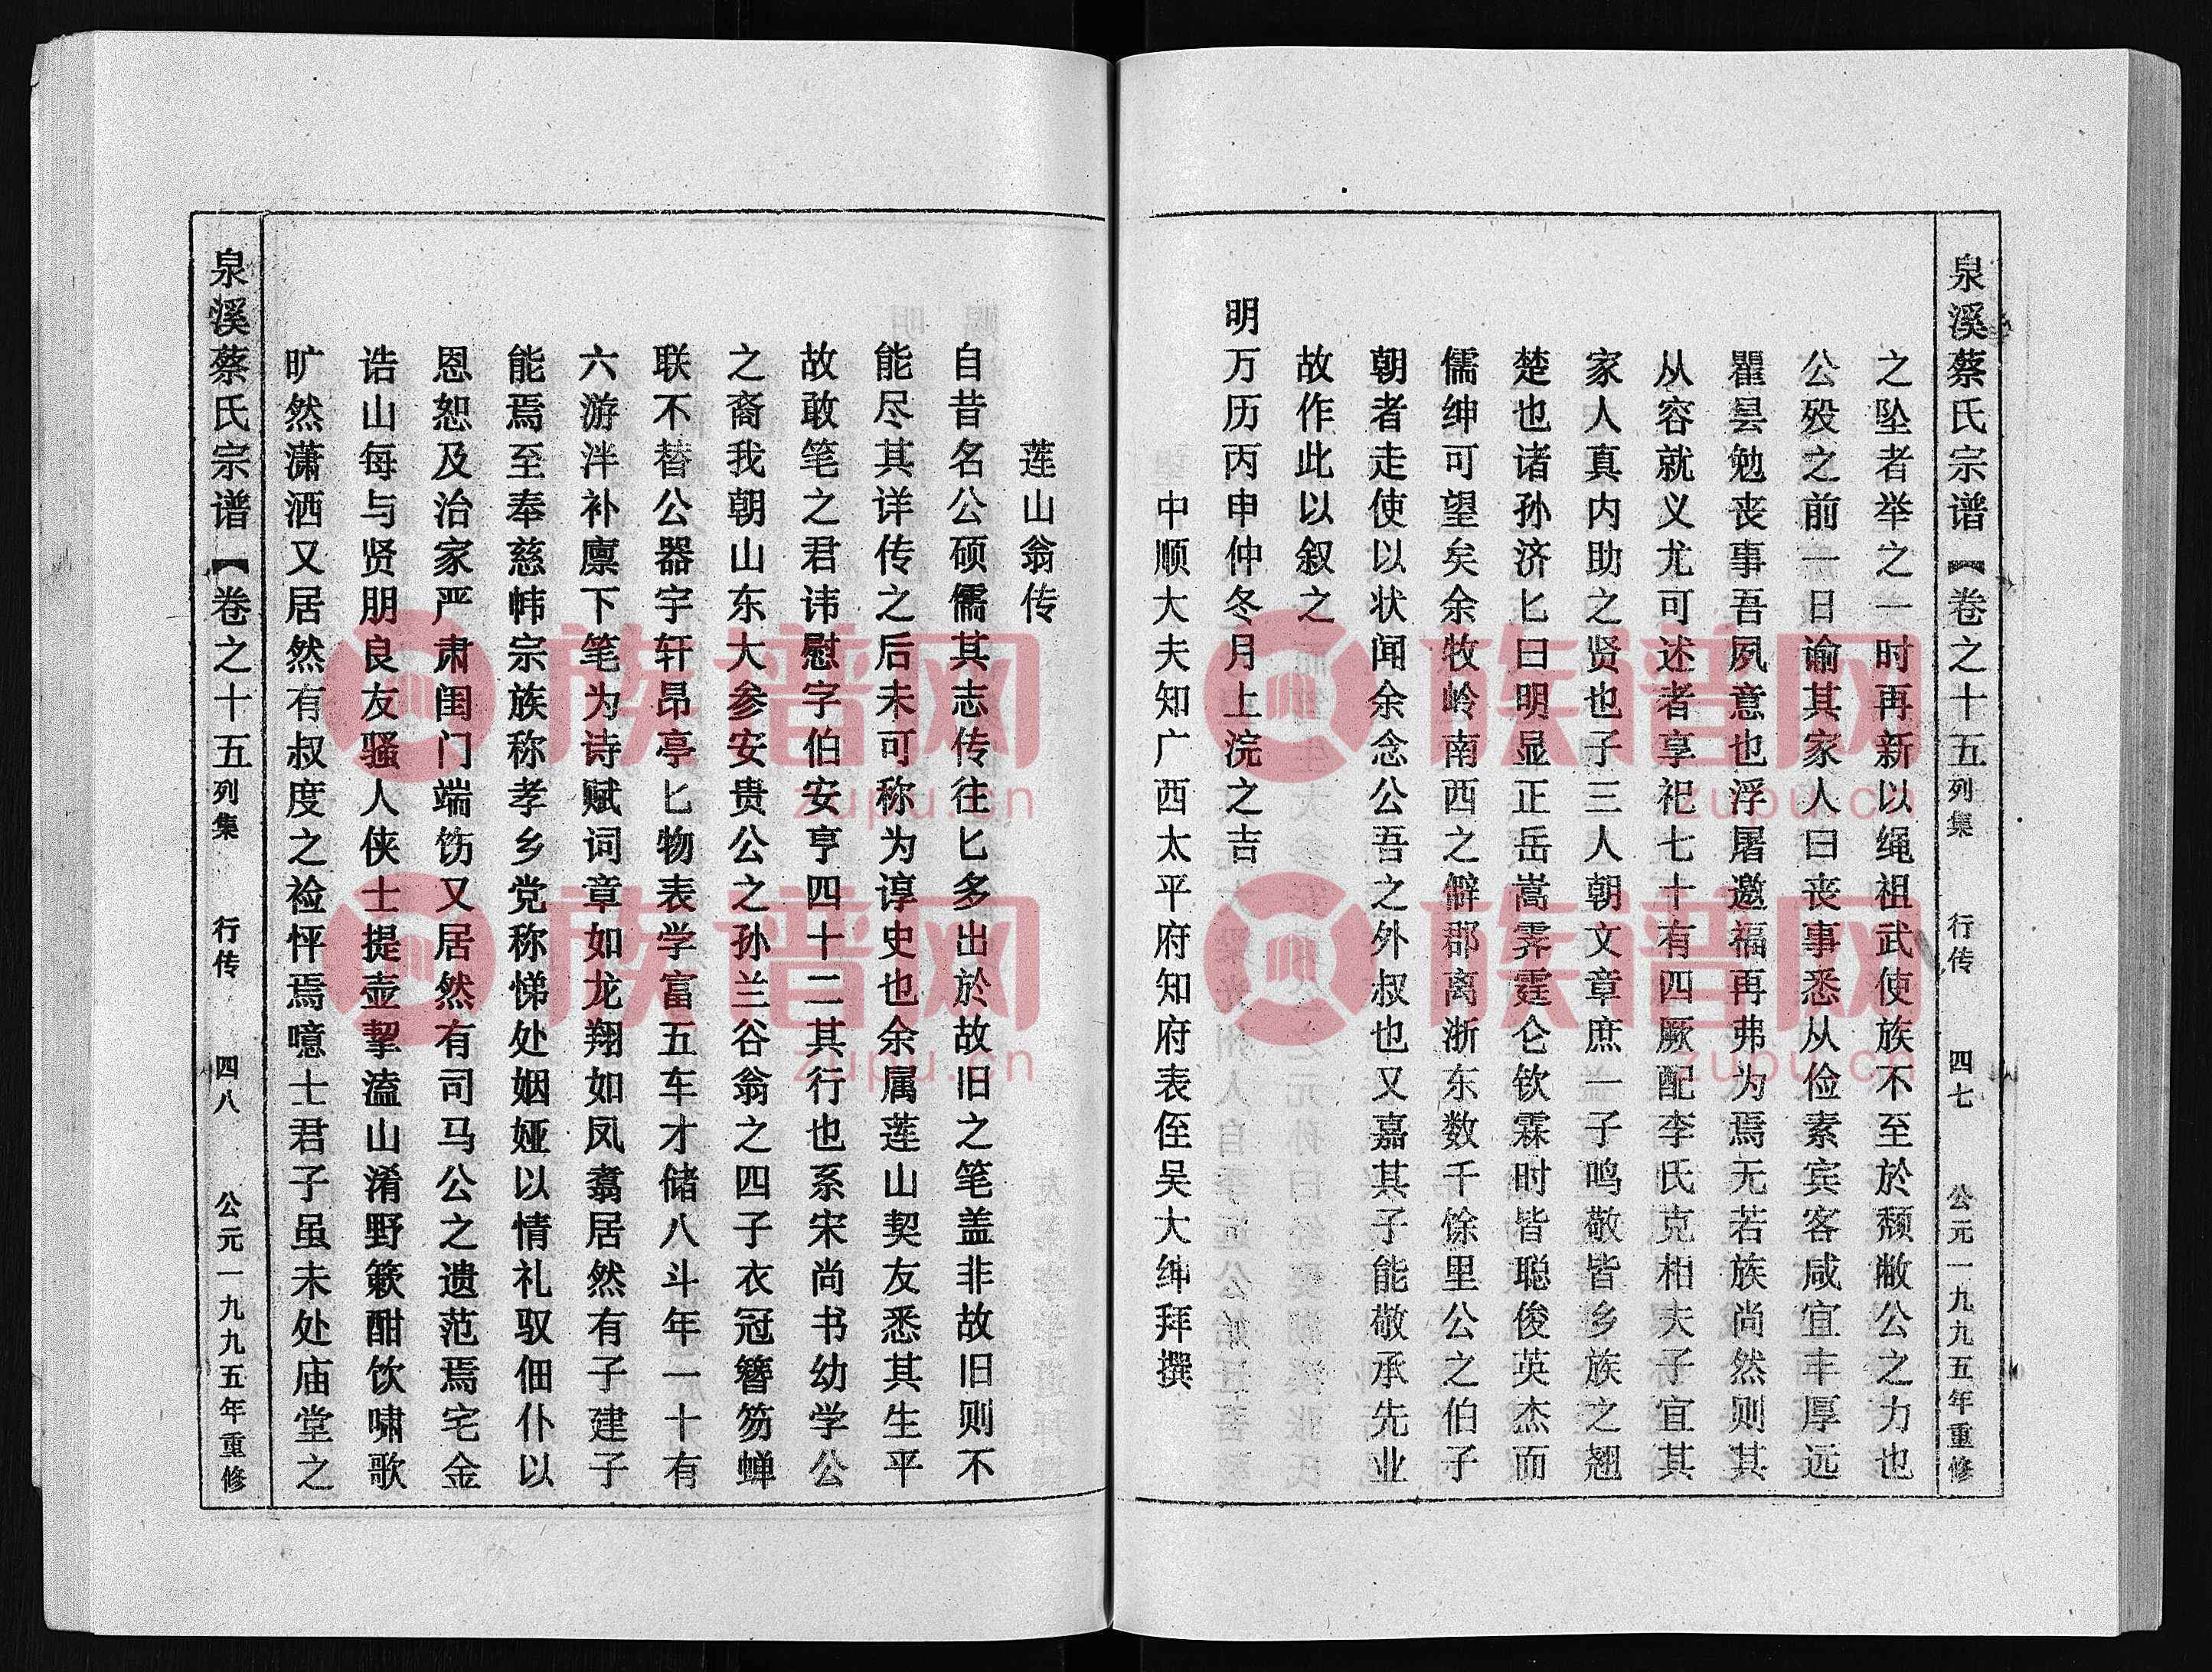 泉溪蔡氏宗谱【卷之十五列集 行传 四七 公元一九九五年重修
之坠者举之一时再新以绳祖武使族不至於颓敝公之力也
公殁之前一日谕其家人曰丧事悉从俭素宾客咸宜丰厚远
瞿昙勉丧事吾夙意也浮屠邀福再弗为焉无若族尚然则其
从容就义尤可述者享祀七十有四厥配李氏克相夫子宜其
家人真内助之贤也子三人朝文章庶一子鸣敬皆乡族之翘
楚也诸孙济匕曰明显正岳嵩霁霆仑钦霖时皆聪俊英杰而
儒绅可望矣余牧岭南西之僻郡离浙东数千馀里公之伯子
朝者走使以状闻余念公吾之外叔也又嘉其子能敬承先业
故作此以叙之
明万历丙申仲冬月上浣之吉
中顺大夫知广西太平府知府表侄吴大绅拜撰
莲山翁传
自昔名公硕儒其志传往匕多出於故旧之笔盖非故旧则不
能尽其详传之后未可称为谆史也余属莲山契友悉其生平
故敢笔之君讳慰字伯安亨四十二其行也系宋尚书幼学公
之裔我朝山东大参安贵公之孙兰谷翁之四子衣冠簪笏蝉
联不替公器宇轩昂亭匕物表学富五车才储八斗年一十有
六游泮补廪下笔为诗赋词章如龙翔如凤翥居然有子建子
能焉至奉慈帏宗族称孝乡党称悌处姻娅以情礼驭佃仆以
恩恕及治家严肃闺门端饬又居然有司马公之遗范焉宅金
诰山每与贤朋良友骚人侠士提壶挈溘山淆野簌酣饮啸歌
旷然潇洒又居然有叔度之裣怦焉噫士君子虽未处庙堂之
泉溪蔡氏宗谱【卷之十五列集 行传 四八 公元一九九五年重修
族谱网
zupu.cn
族谱网
zupu.cn
族谱网
zupu.cn
族谱网
zupu.cn